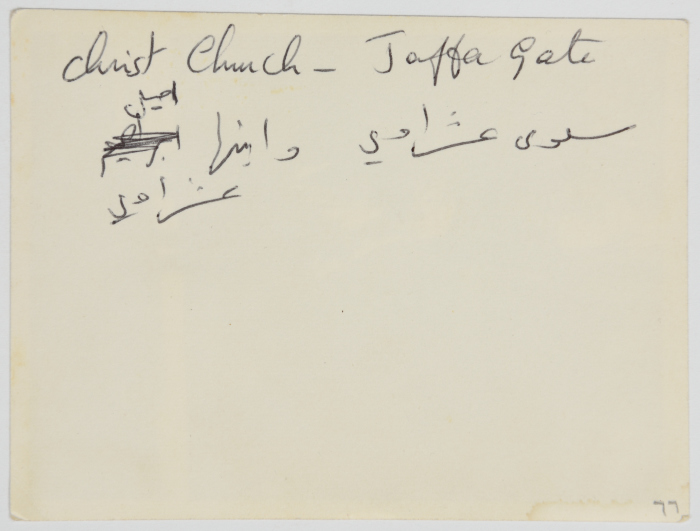 Christ Church - Jaffa Gate
سلوى عشراوي وابنها
عشراوي
٦٦